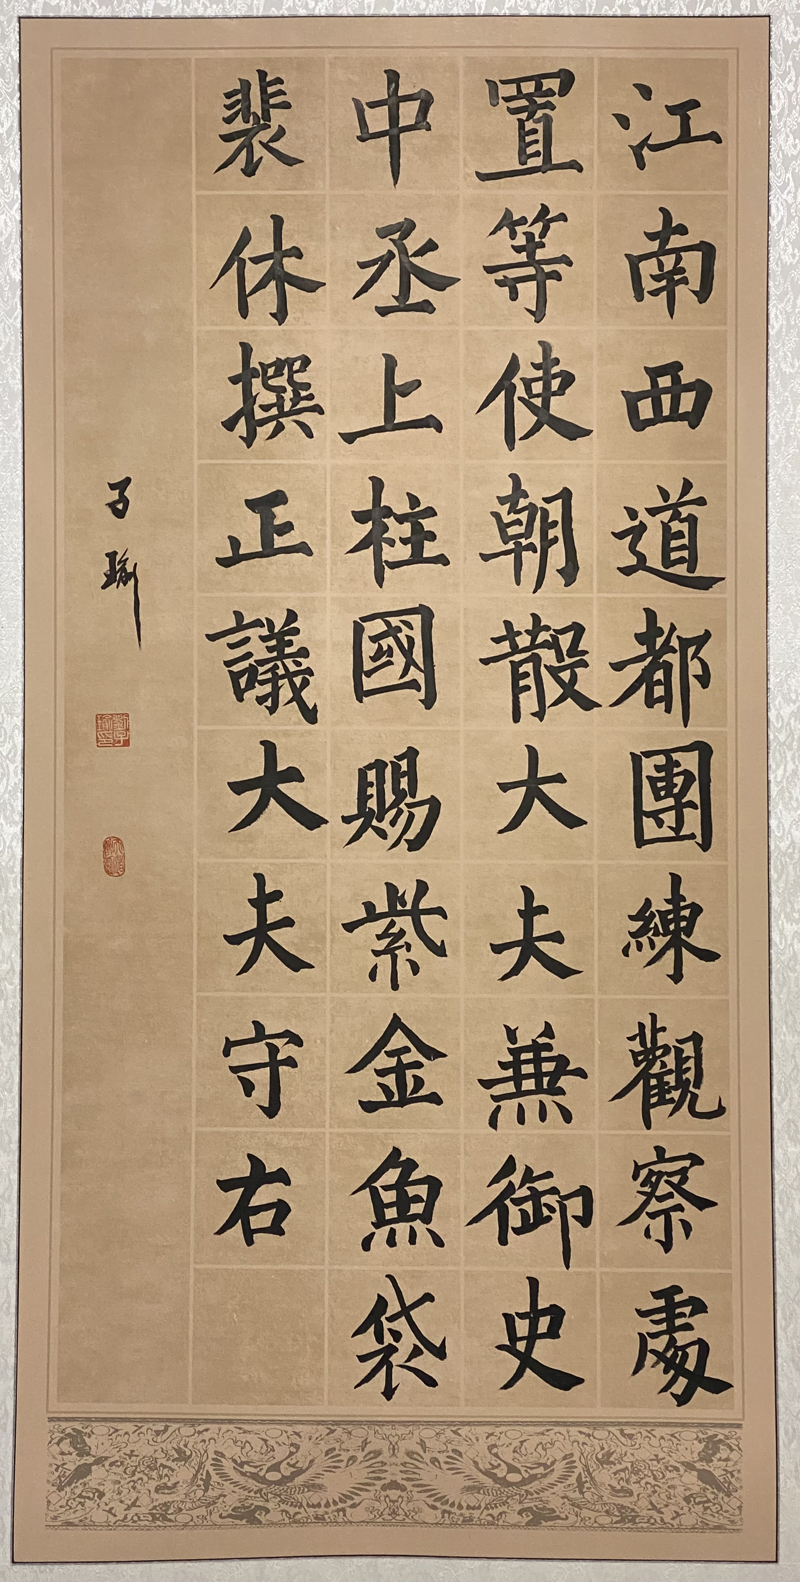 江南西道都團練觀察處
置等使朝散大夫兼御史
中丞上柱國賜紫金魚袋
裴休撰正議大夫守右
子瑜